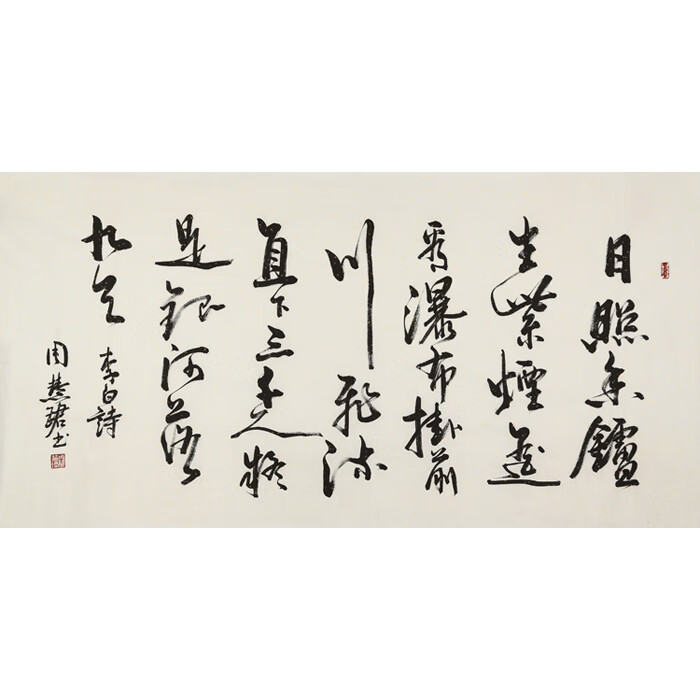 日照香鑪
生紫煙遥
看瀑布掛前
川飛流
直下三千尺疑
是銀河落
九天
李白詩
周慧珺書